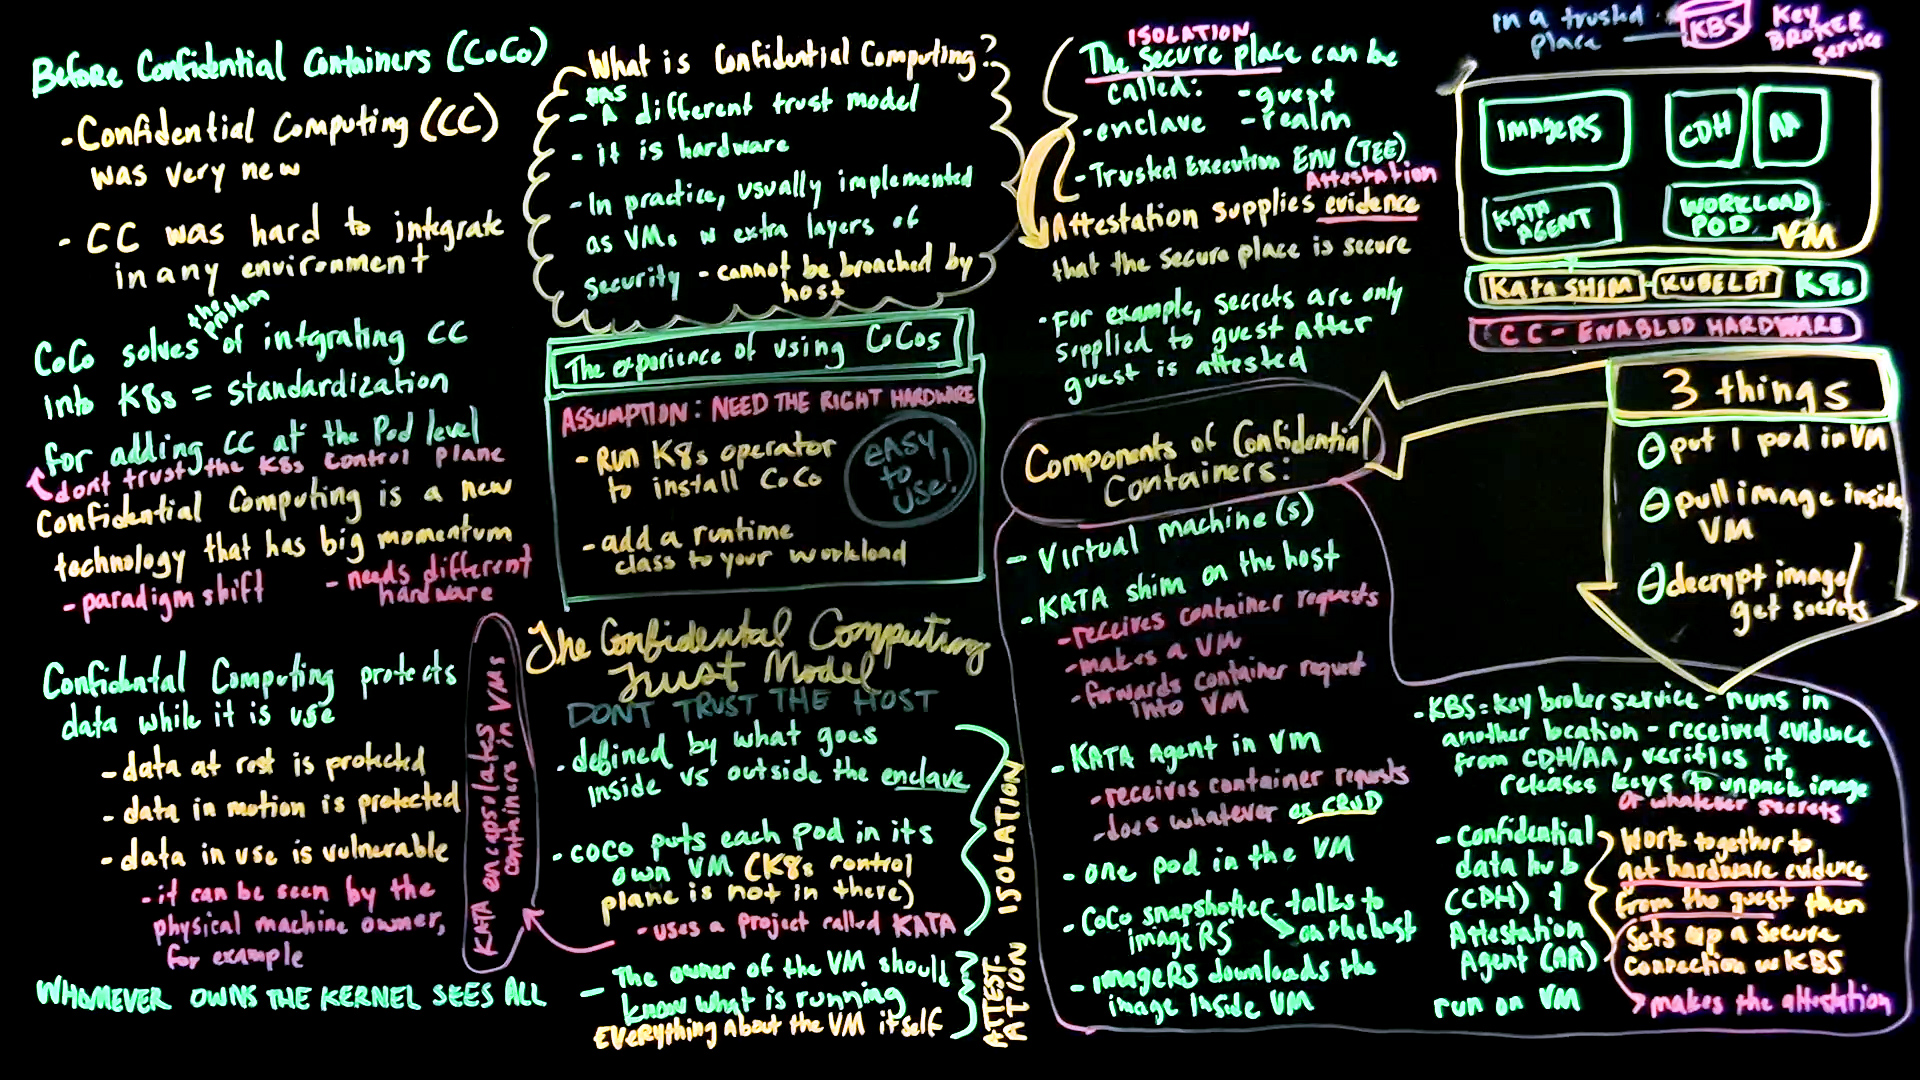 Before Confidential Containers (CoCo)
- Confidential Computing (CC)
was very new
- CC was hard to integrate
in any environment
the problem
CoCo solves of integrating CC
into K8s = standardization
for adding CC at the Pod level
don't trust the K8s control plane
Confidential Computing is a new
technology that has big momentum
- paradigm shift
- needs different
hardware
Confidental Computing protects
data while it is use
- data at rest is protected
- data in motion is protected
- data in use is vulnerable
- it can be seen by the
physical machine owner,
for example
WHOMEVER OWNS THE KERNEL SEES ALL
KATA encapsulates
containers in VMs
What is Confidential Computing?
HAS
- A different trust model
- it is hardware
- In practice, usually implemented
as VMs w extra layers of
security - cannot be breached by
host
The experience of using CoCos
ASSUMPTION: NEED THE RIGHT HARDWARE
- Run K8s operator
to install CoCo
easy
to
use!
- add a runtime
class to your workload
The Confidental Computing
Trust Model
DONT TRUST THE HOST
- defined by what goes
inside vs outside the enclave
- COCO puts each Pod in its
own VM (K8s control
plane is not in there)
- uses a project called KATA
ISOLATION
- The owner of the VM should
know what is running
EVERYthing About the VM itself
ATTEST-
ATION
ISOLATION
The secure place can be
called: - guest
- enclave - realm
- Trusted Execution Env (TEE)
Attestation
Attestation supplies evidence
that the secure place is secure
- For example, secrets are only
supplied to guest after
guest is attested
Components of Confidential
Containers:
- Virtual machine(s)
- KATA shim on the host
- receives container requests
- makes a VM
- forwards container request
into VM
- KATA Agent in VM
- receives container requests
- does whatever ex CRUD
- one pod in the VM
- CoCo snapshotter talks to
image RS
on the host
- imageRS downloads the
image inside VM
in a trusted
place
KBS
Key
BROKER
Service
IMAGERS
CDH
AA
KATA
AGENT
WORKLOAD
POD
VM
KATA SHIM
KUBELET
K8s
CC - ENABLED HARDWARE
3 things
put 1 pod in VM
pull image inside
VM
decrypt image/
get secrets
- KBS = Key broker service - runs in
another location - received evidence
from CDH/AA, verifies it,
releases keys to unpack image
or whatever secrets
- Confidential
data hub
(CDH) &
Attestation
Agent (AA)
run on VM
Work together to
get hardware evidence
from the guest then
sets up a secure
connection w KBS
makes the attestation